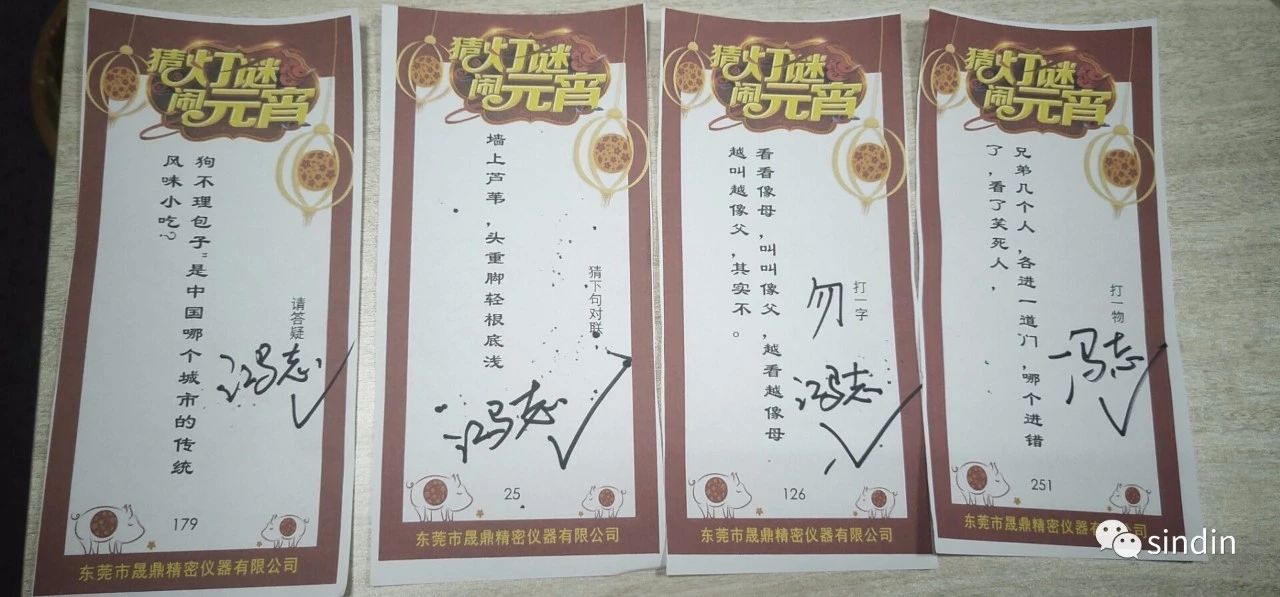 猜灯谜
闹元宵
狗不理包子”是中国哪个城市的传统
风味小吃?
请答疑
冯志
179
东莞市晟鼎精密仪器有限公司
猜灯谜
闹元宵
墙上芦苇,头重脚轻根底浅
猜下句对联
冯志
25
东莞市晟鼎精密仪器有限公司
猜灯谜
闹元宵
看看像母,叫叫像父,越看越像母
越叫越像父,其实不。
打一字
勿
冯志
126
东莞市晟鼎精密仪器有限公司
猜灯谜
闹元宵
兄弟几个人,各进一道门,哪个进错
了,看了笑死人,
打一物
冯志
251
东莞市晟鼎精密仪器有限公司
sindin